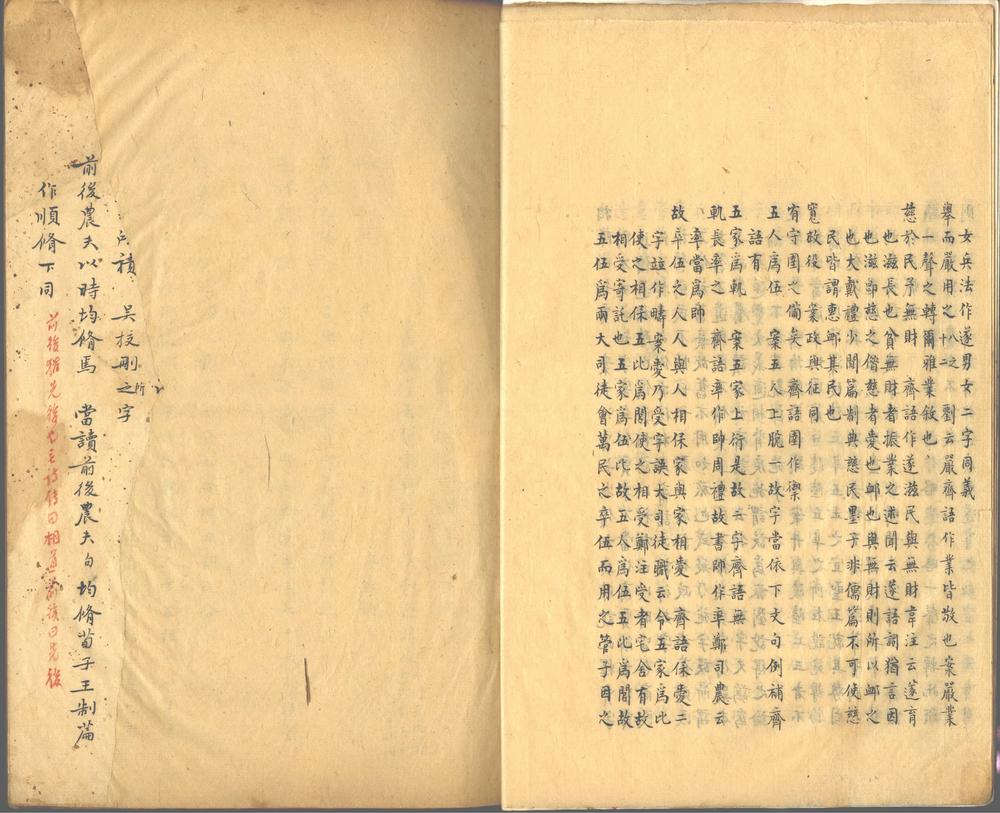 女兵法作遂男女二字同義
舉而嚴用之十二 劉云嚴齊語作業皆敬也案嚴業
一聲之轉爾雅業敘也
慈於民予無財 齊語作遂滋民與無財韋注云遂育
也滋長也貧無財者振業之述聞云遂語詞猶言因
也滋即慈之借慈者愛也卹也與無財則所以卹之
也大戴禮少閒篇制典慈民墨子非儒篇不可使慈
民皆謂惠卹其民也
寬政役 案政與征同
有守圉之備矣 齊語圉作禦
五人為伍 案五人上脫一故字當依下文句例補齊
語有
五家為軌 案五家上衍是故二字齊語無
軌長率之 齊語率作帥周禮故書帥作率鄭司農云
率當為帥
故卒伍之人人與人相保家與家相愛 齊語保愛二
字竝作疇案愛乃受字誤大司徒職云令五家為比
使之相保五比為閭使之相受鄭注受者宅舍有故
相受寄託也五家為伍比故五人為伍五比為閭故
五伍為兩大司徒會萬民之卒伍而用之管子目之
積 吳挍刪之所字
前後農夫以時均脩焉 當讀前後農夫句均脩荀子王制篇
作順脩下同
前後猶先後也毛詩傳曰相道前後曰先後